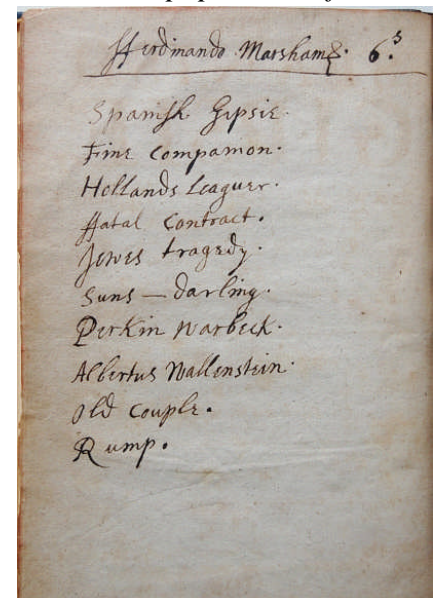 Fferdinando Marsham 6.s
Spanish Gipsie.
Fine Companion.
Hollands Leaguer.
Ffatal Contract.
Jewes tragedy.
Suns — darling.
Perkin Warbeck.
Albertus Wallenstein.
Old Couple.
Rump.